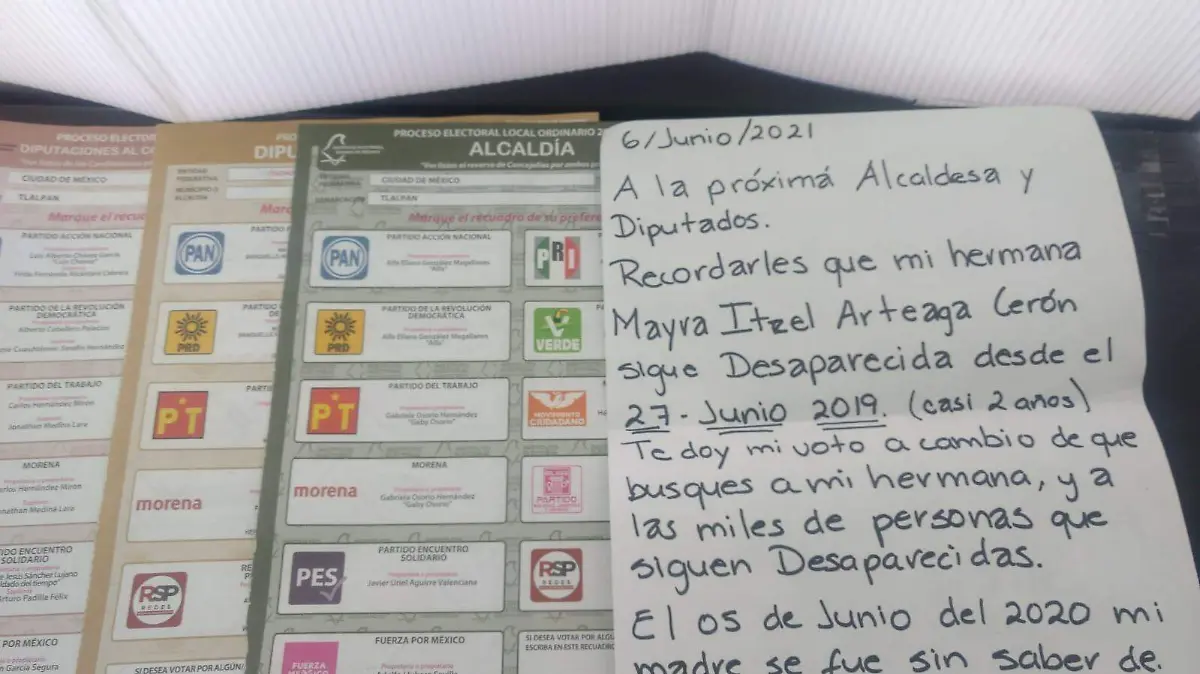 PROCESO ELECTOR
DIPUTACIONES AL CO
CIUDAD DE MÉXICO
TLALPAN
Marque el recu
PARTIDO ACCIÓN NACIONAL
PARTIDO DE LA REVOLUCIÓN
DEMOCRÁTICA
PARTIDO DEL TRABAJO
Carlos Hernández Mirón
Jonathan Medina Lara
MORENA
Carlos Hernández Mirón
Jonathan Medina Lara
IDO ENCUENTRO
SOLIDARIO
Arturo Padilla Félix
POR MÉXICO
n García Segura
PRO
DIPU
Marq
PAN
PARTIDO
PRD
PARTIDO DE
PT
PARTI
morena
RSP
REDES
SI DESEA VOTAR POR ALGÚN
PROCESO ELECTORAL LOCAL ORDINARIO 2
ALCALDÍA
CIUDAD DE MÉXICO
TLALPAN
Marque el recuadro de su prefere
PAN
PARTIDO ACCIÓN NACIONAL
Alfa Eliana González Magallanes
"Alfa"
PRI
PRD
PARTIDO DE LA REVOLUCIÓN
DEMOCRÁTICA
Alfa Eliana González Magallanes
"Alfa"
VERDE
PT
PARTIDO DEL TRABAJO
Gabriela Osorio Hernández
"Gaby Osorio"
MOVIMIENTO
CIUDADANO
morena
MORENA
Gabriela Osorio Hernández
"Gaby Osorio"
PARTIDO
PES
PARTIDO ENCUENTRO
SOLIDARIO
Javier Uriel Aguirre Valenciana
RSP
REDES
FUERZA
MÉXICO
FUERZA POR MÉXICO
SI DESEA VOTAR POR ALGU
ESCRIBA EN ESTE RECUADRO
6/Junio/2021
A la próximá Alcaldesa y
Diputados.
Recordarles que mi hermana
Mayra Itzel Arteaga Cerón
sigue Desaparecida desde el
27-Junio 2019. (casi 2 años)
Te doy mi voto a cambio de que
busques a mi hermana, y a
las miles de personas que
siguen Desaparecidas.
El 05 de Junio del 2020 mi
madre se fue sin saber de.